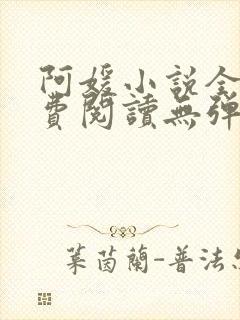 阿媛小说全
費閱讀無彈
葉茵蘭-普法